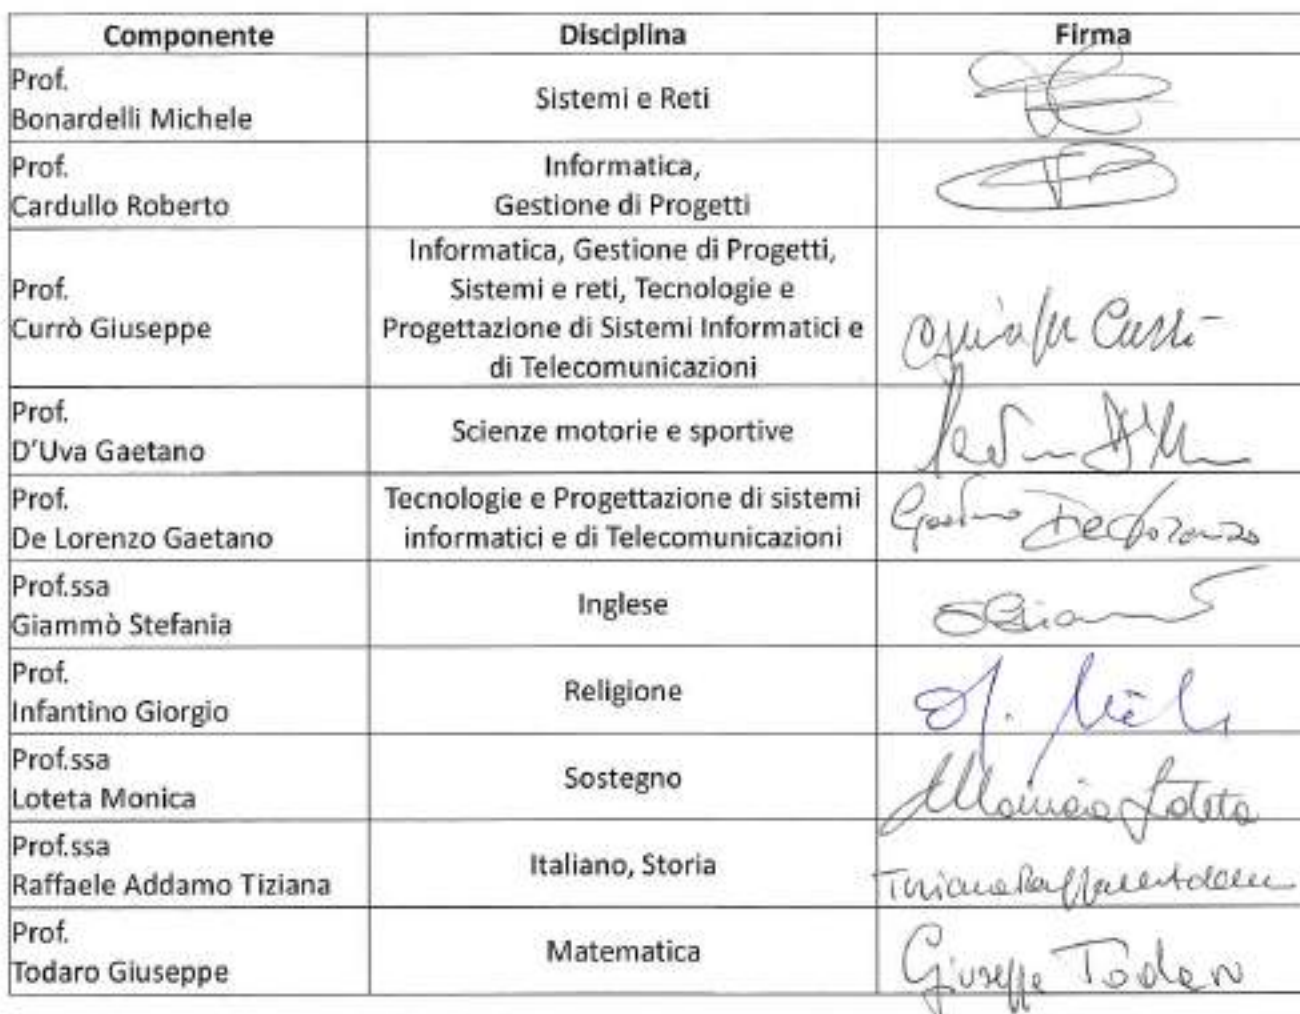 Componente Disciplina Firma
Prof.
Bonardelli Michele
Sistemi e Reti
Prof.
Cardullo Roberto
Informatica,
Gestione di Progetti
Prof.
Currò Giuseppe
Informatica, Gestione di Progetti,
Sistemi e reti, Tecnologie e
Progettazione di Sistemi Informatici e
di Telecomunicazioni
Prof.
D'Uva Gaetano
Scienze motorie e sportive
Prof.
De Lorenzo Gaetano
Tecnologie e Progettazione di sistemi
informatici e di Telecomunicazioni
Gaetano De Lorenzo
Prof.ssa
Giammò Stefania
Inglese
Prof.
Infantino Giorgio
Religione
Prof.ssa
Loteta Monica
Sostegno
Monica Loteta
Prof.ssa
Raffaele Addamo Tiziana
Italiano, Storia
Prof.
Todaro Giuseppe
Matematica
Giuseppe Todaro